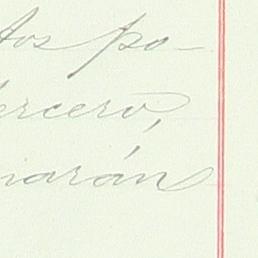 tos po-
ercero,
narán